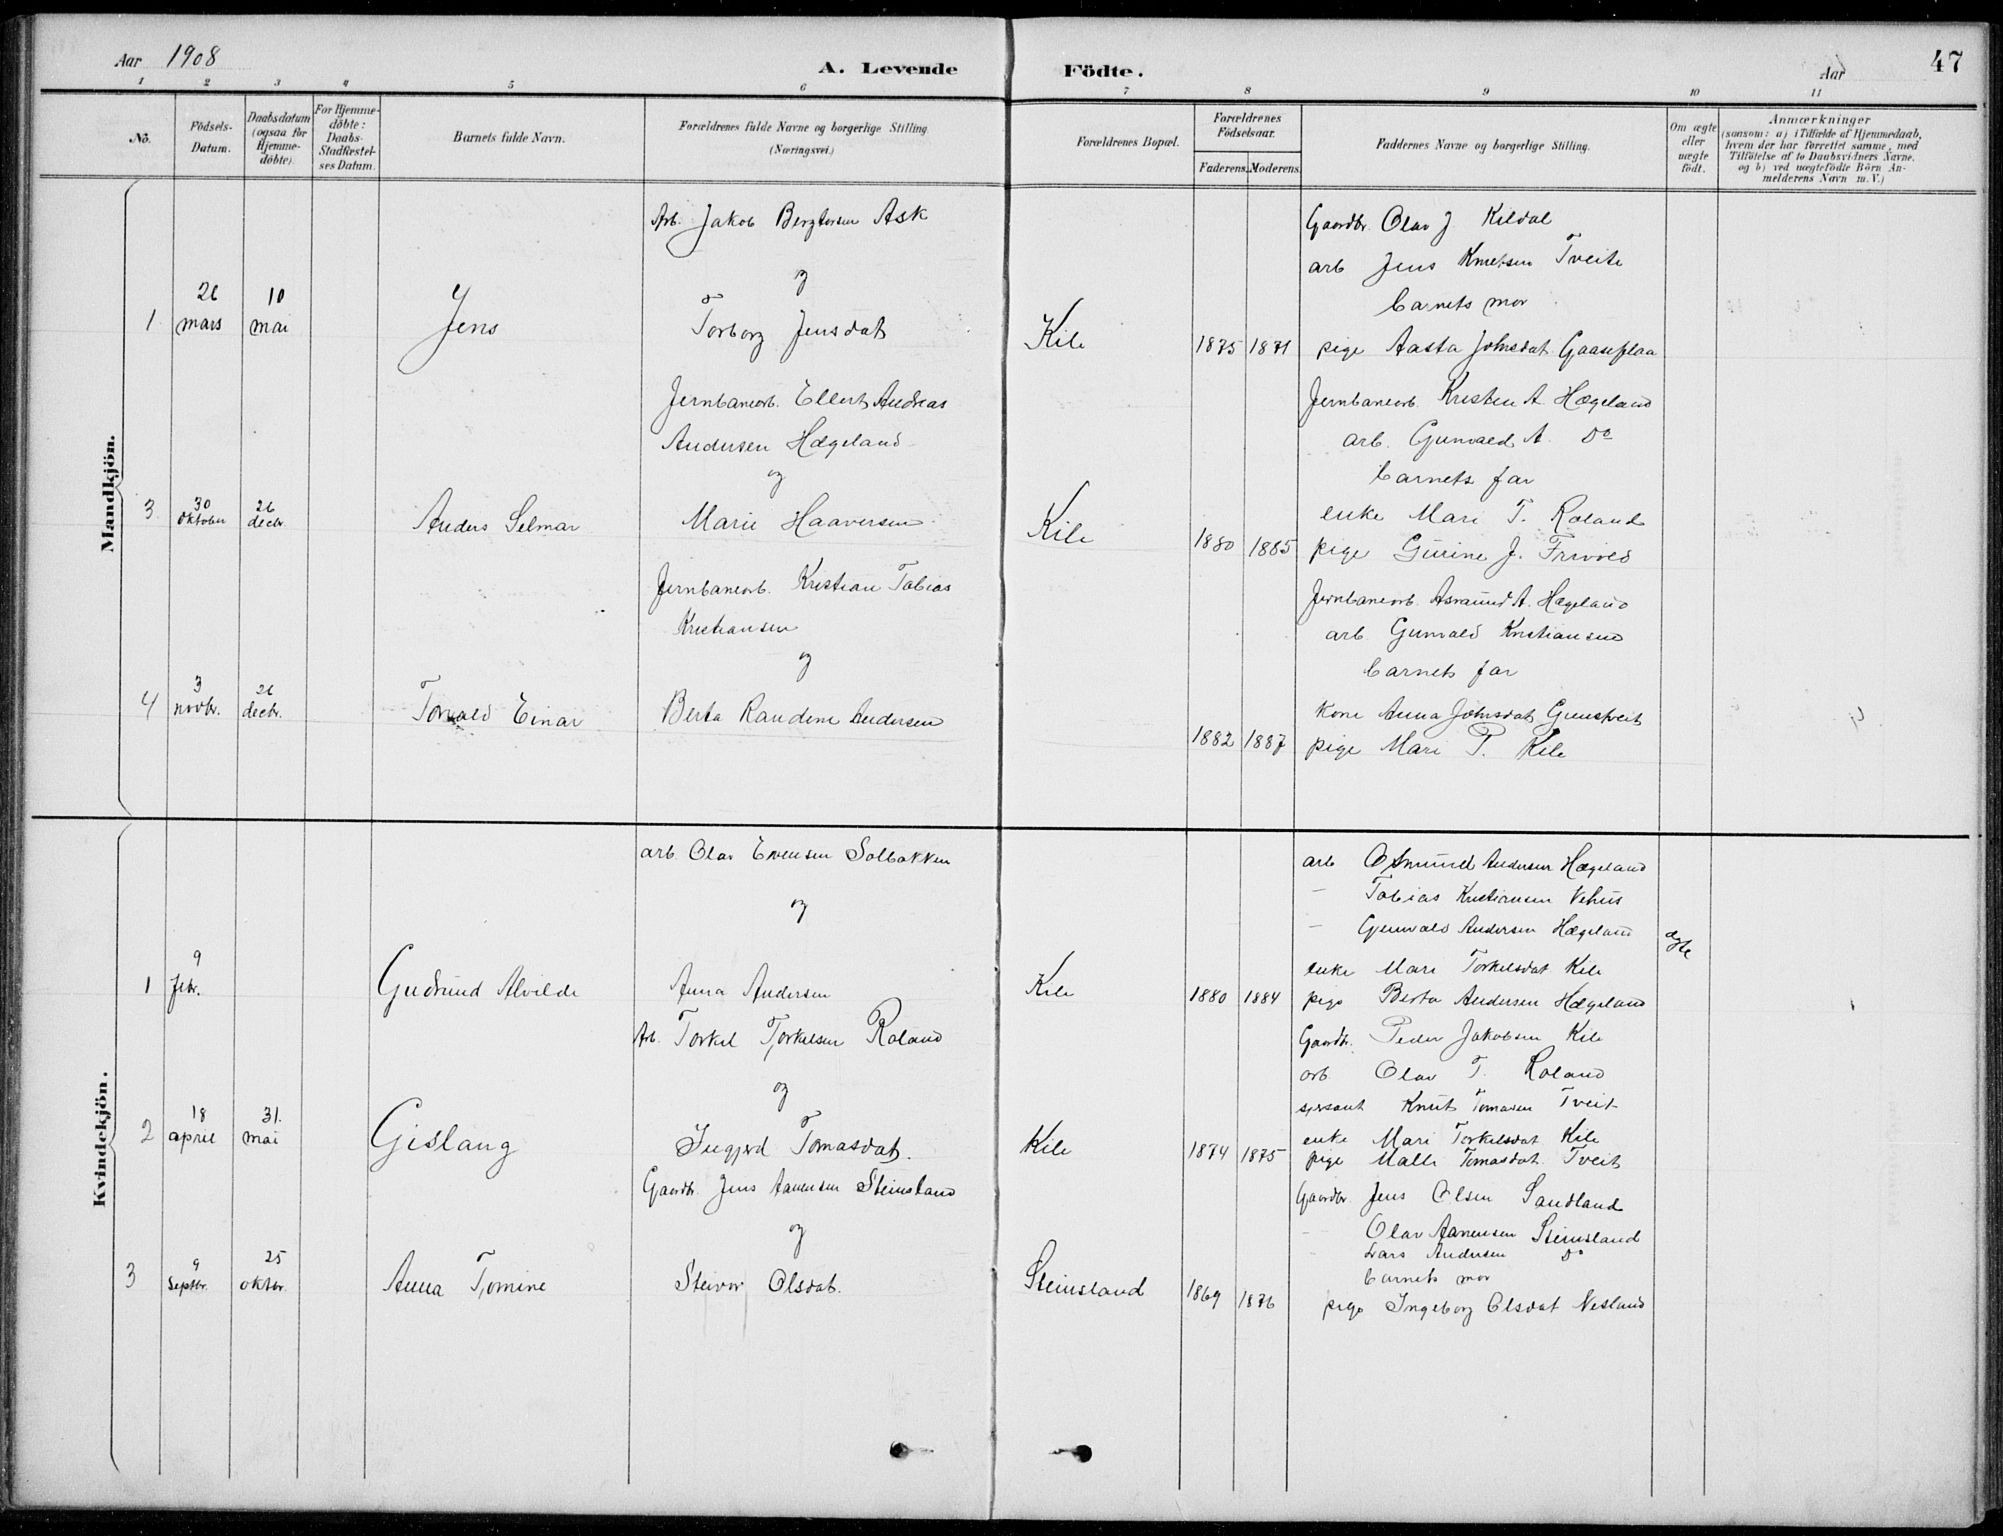 Aar 1908
A. Levende Födte.
Aar 47
1 2 3 4 5 6 7 8 9 10 11
Nö.
Födsels-Datum.
Daabsdatum (ogsaa for Hjemme-döbte).
For Hjemme-döbte: Daabs-Stadfæstel-ses Datum.
Barnets fulde Navn.
Forældrenes fulde Navne og borgerlige Stilling (Næringsvei.)
Forældrenes Bopæl.
Forældrenes Födselsaar.
Faderens. Moderens.
Faddernes Navne og borgerlige Stilling.
Om ægte eller uægte födt.
Anmærkninger
(saasom: a) i Tilfælde af Hjemmedaab,
hvem der har forrettet samme, med
Tilföielse af to Daabsvidners Navne,
og b) ved uægtefödte Börn An-
melderens Navn m. V.)
Mandkjön.
1
26 mars
10 mai
Jens
Arb. Jakob Bergtorsen Ask
og
Torborg Jensdat
Kile
1875 1871
Gaardbr. Olav J Kildal
arb Jens Knutsen Tveite
barnets mor
pige Aasta Johnsdat Gaaseflaa
3
30 oktober
26 decbr.
Anders Selmar
Jernbanearb. Ellert Andreas
Andersen Hægeland
og
Marie Haaversen
Kile
1880 1885
Jernbanearb. Kristen A. Hægeland
arb. Gunvald A. Do
barnets far
enke Mari T. Roland
pige Gurine J. Frivold
4
3 novbr.
26 decbr.
Torvald Einar
Jernbanearb. Kristian Tobias
Kristiansen
og
Berta Randine Andersen
1882 1887
Jernbanearb. Asmund A. Hægeland
arb Gunvald Kristiansen
barnets far
kone Anna Johnsdat Grunstveit
pige Mari T. Kile
Kvindekjön.
1
9 febr.
Gudrund Alvilde
arb. Olav Evensen Solbakken
og
Anna Andersen
Kile
1880 1884
arb Osmund Andersen Hægeland
— Tobias Kristiansen Vehus
— Gunvald Andersen Hægeland
enke Mari Torkelsdat Kile
pige Berta Andersen Hægeland
ægte
2
18 april
31. mai
Gislaug
Arb. Torkel Torkelsen Roland
og
Ingjerd Tomasdat.
Kile
1874 1875
Gaardbr. Peder Jakobsen Kile
arb. Olav T. Roland
sersant Knut Tomasen Tveit
enke Mari Torkelsdat Kile
pige Malli Tomasdat Tveit
3
9 septbr.
25 oktbr.
Anna Tomine
Gaardbr. Jens Aanensen Steinsland
og
Steivor Olsdat.
Steinsland
1869 1876
Gaardbr Jens Olsen Sandland
— Olav Aanensen Steinsland
Lars Andersen Do
barnets mor
pige Ingeborg Olsdat Nesland